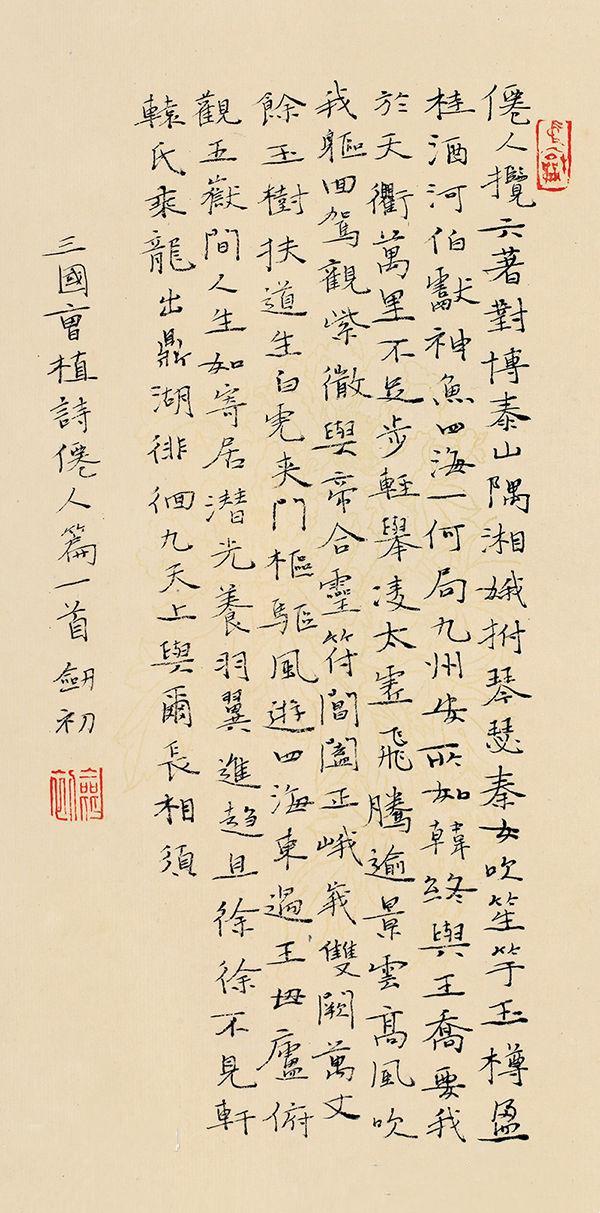 僊人攬六著對博泰山隅湘娥拊琴瑟秦女吹笙竽玉樽盈
桂酒河伯獻神魚四海一何局九州安所如韓終與王喬要我
於天衢萬里不足步輕舉凌太虛飛騰逾景雲高風吹
我軀回駕觀紫微與帝合靈符閶闔正峨峩雙闕萬丈
餘玉樹扶道生白虎夾門樞驅風遊四海東過王母廬俯
觀五嶽間人生如寄居潛光養羽翼進趨且徐徐不見軒
轅氏乘龍出鼎湖徘徊九天上與爾長相須
三國曹植詩僊人篇一首 劒初